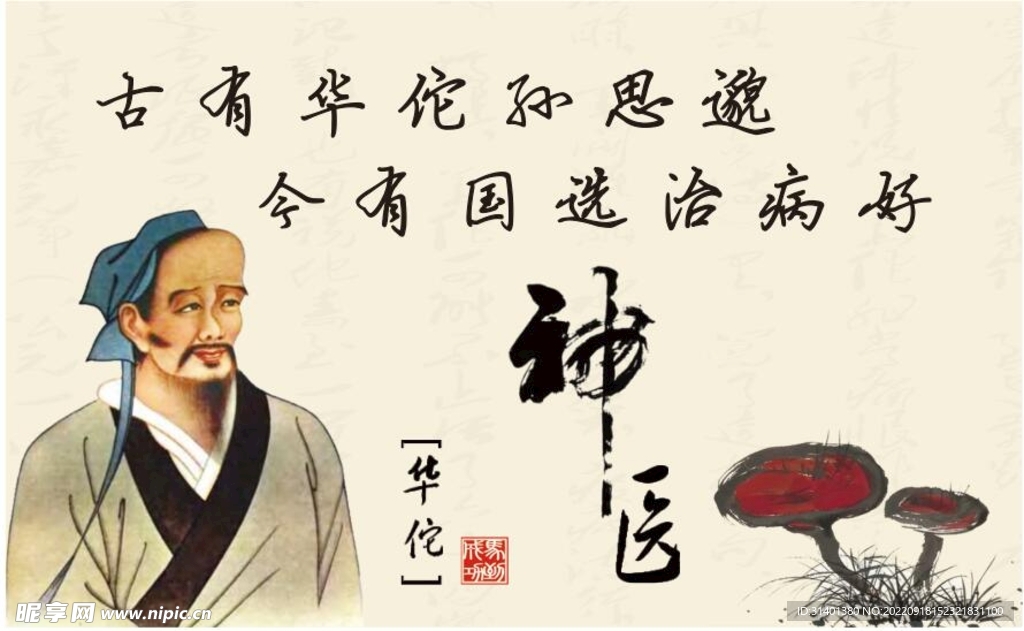 古有华佗孙思邈
今有国选治病好
神医
[华佗]
马到成功
昵享网 www.nipic.cn
ID:31401380 NO:20220918152321831100